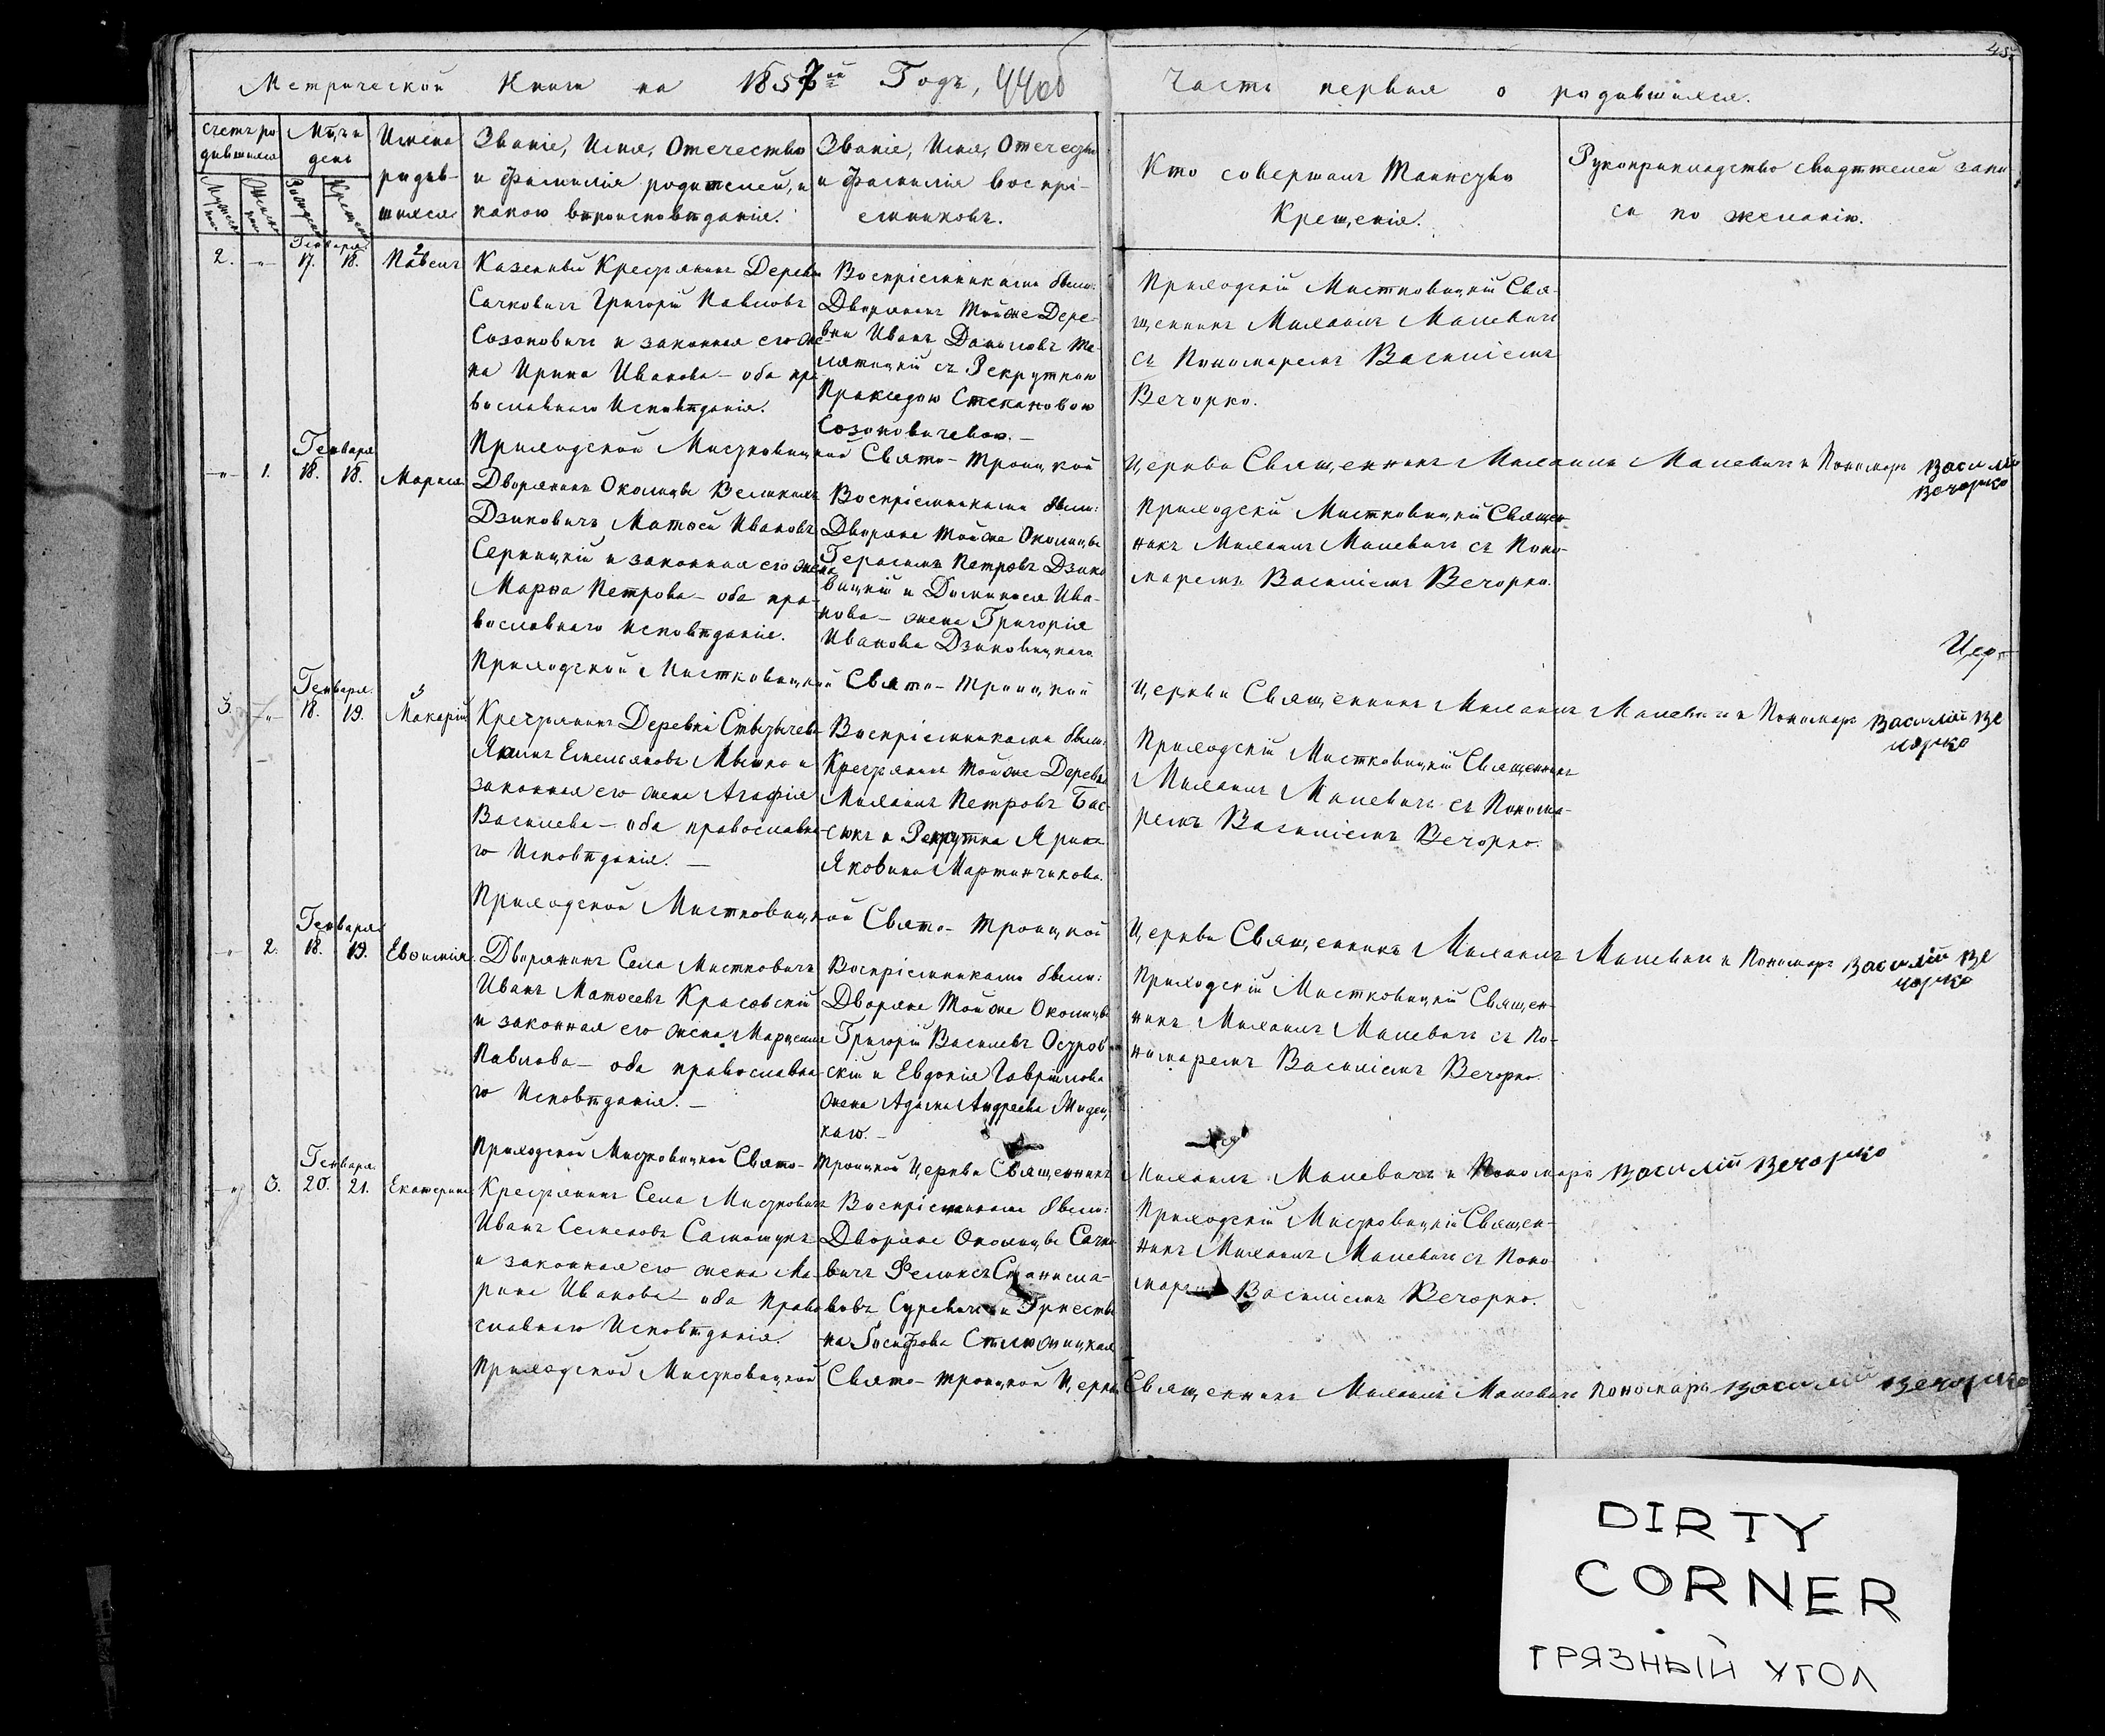 45.
Метрической Книги на 1857й Годъ, 44об
Часть первая о родившихся.
Счетъ ро
дившихся
Мужеска
Женска
Мц҃ъ и
день
Рожденія
Крещенія
Имена
родив-
шихся
Званіе, Имя, Отечество
и Фамилія родителей, и
какого вѣроисповѣданія.
Званіе, Имя, Отечество
и Фамилія воспрі-
емниковъ.
Кто совершалъ Таинство
Крещенія.
Рукоприкладство свидѣтелей запи
си по желанію.
Генваря
2. -"- 17. 18.
2
Павелъ
Казенный Крестьянинъ Деревни
Сачковичъ Григорій Павловъ
Созоновичъ и законная его же-
на Ирина Иванова - оба пра-
вославнаго Исповѣданія.
Воспріемниками были:
Дворянинъ Той же Дере-
вни Иванъ Даниловъ
съ Рекруткою
Праксѣдою Степановою
Созоновичевою. -
Приходскій Мистковицкій Свя-
щенникъ Михаилъ Малевичъ
съ Пономаремъ Василіемъ
Вечорко.
Приходской Мистковицкой Свято-Троицкой Церкви Священникъ Михаилъ Малевичъ и Пономарь Василій
Вечорко
Генваря
-"- 1. 18. 18.
Марія
Дворянинъ Околицы Великихъ
Дзиковичъ Матѳей Ивановъ
Серницкій и законная его жена
Марѳа Петрова - оба пра-
вославнаго Исповѣданія.
Воспріемниками были:
Дворяне Той же Околицы
Герасимъ Петровъ Дзико
вицкій и Домникія Ива-
нова - жена Григорія
Иванова Дзиковицкаго.
Приходскій Мистковицкій Священ-
никъ Михаилъ Малевичъ съ Поно-
маремъ Василіемъ Вечорко.
Цер-
Приходской Мистковицкой Свято-Троицкой Церкви Священникъ Михаилъ Малевичъ и Пономарь Василій Ве
чорко
Генваря
3. -"- 18. 19.
3
Макарій
Крестьянинъ Деревни
Якимъ Емельяновъ и
законная его жена Агафія
Васильева - оба православна-
го Исповѣданія. -
Воспріемниками были:
Крестьянинъ Той же Деревни
Михаилъ Петровъ Бас-
сюкъ и Рекрутка Ярина
Яковина Мартинчикова.
Приходскій Мистковицкій Священникъ
Михаилъ Малевичъ съ Понома-
ремъ Василіемъ Вечорко.
Приходской Мистковицкой Свято-Троицкой Церкви Священникъ Михаилъ Малевичъ и Пономарь Василій Ве
чорко
Генваря
-"- 2. 18. 19.
Евѳимія.
Дворянинъ Села Мистковичъ
Иванъ Матѳеевъ Красовскій
и законная его жена
Павлова - оба православна-
го Исповѣданія. -
Воспріемниками были:
Дворяне Той же Околицы
Григорій Васильевъ Остров-
скій и Евдокія Гаврилова
жена Адама Андреева
каго. -
Приходскій Мистковицкій Священ-
никъ Михаилъ Малевичъ съ По-
номаремъ Василіемъ Вечорко.
Приходской Мистковицкой Свято-Троицкой Церкви Священникъ Михаилъ Малевичъ и Пономарь Василій Вечорко
Генваря
-"- 3. 20. 21.
Екатерина
Крестьянинъ Села Мистковичъ
Иванъ Семеновъ Самошукъ
и законная его жена Ма-
рина Иванова - оба Право
славнаго Исповѣданія.
Воспріемниками были:
Дворяне Околицы Сачко
вичъ Феликсъ Станисла-
вовъ Суревичъ и
на Іосифова
Приходскій Мистковицкій Священ-
никъ Михаилъ Малевичъ съ Поно
маремъ Василіемъ Вечорко.
Приходской Мистковицкой Свято-Троицкой Церкви Священникъ Михаилъ Малевичъ Пономарь Василій Вечорко
DIRTY
CORNER
ГРЯЗНЫЙ УГОЛ